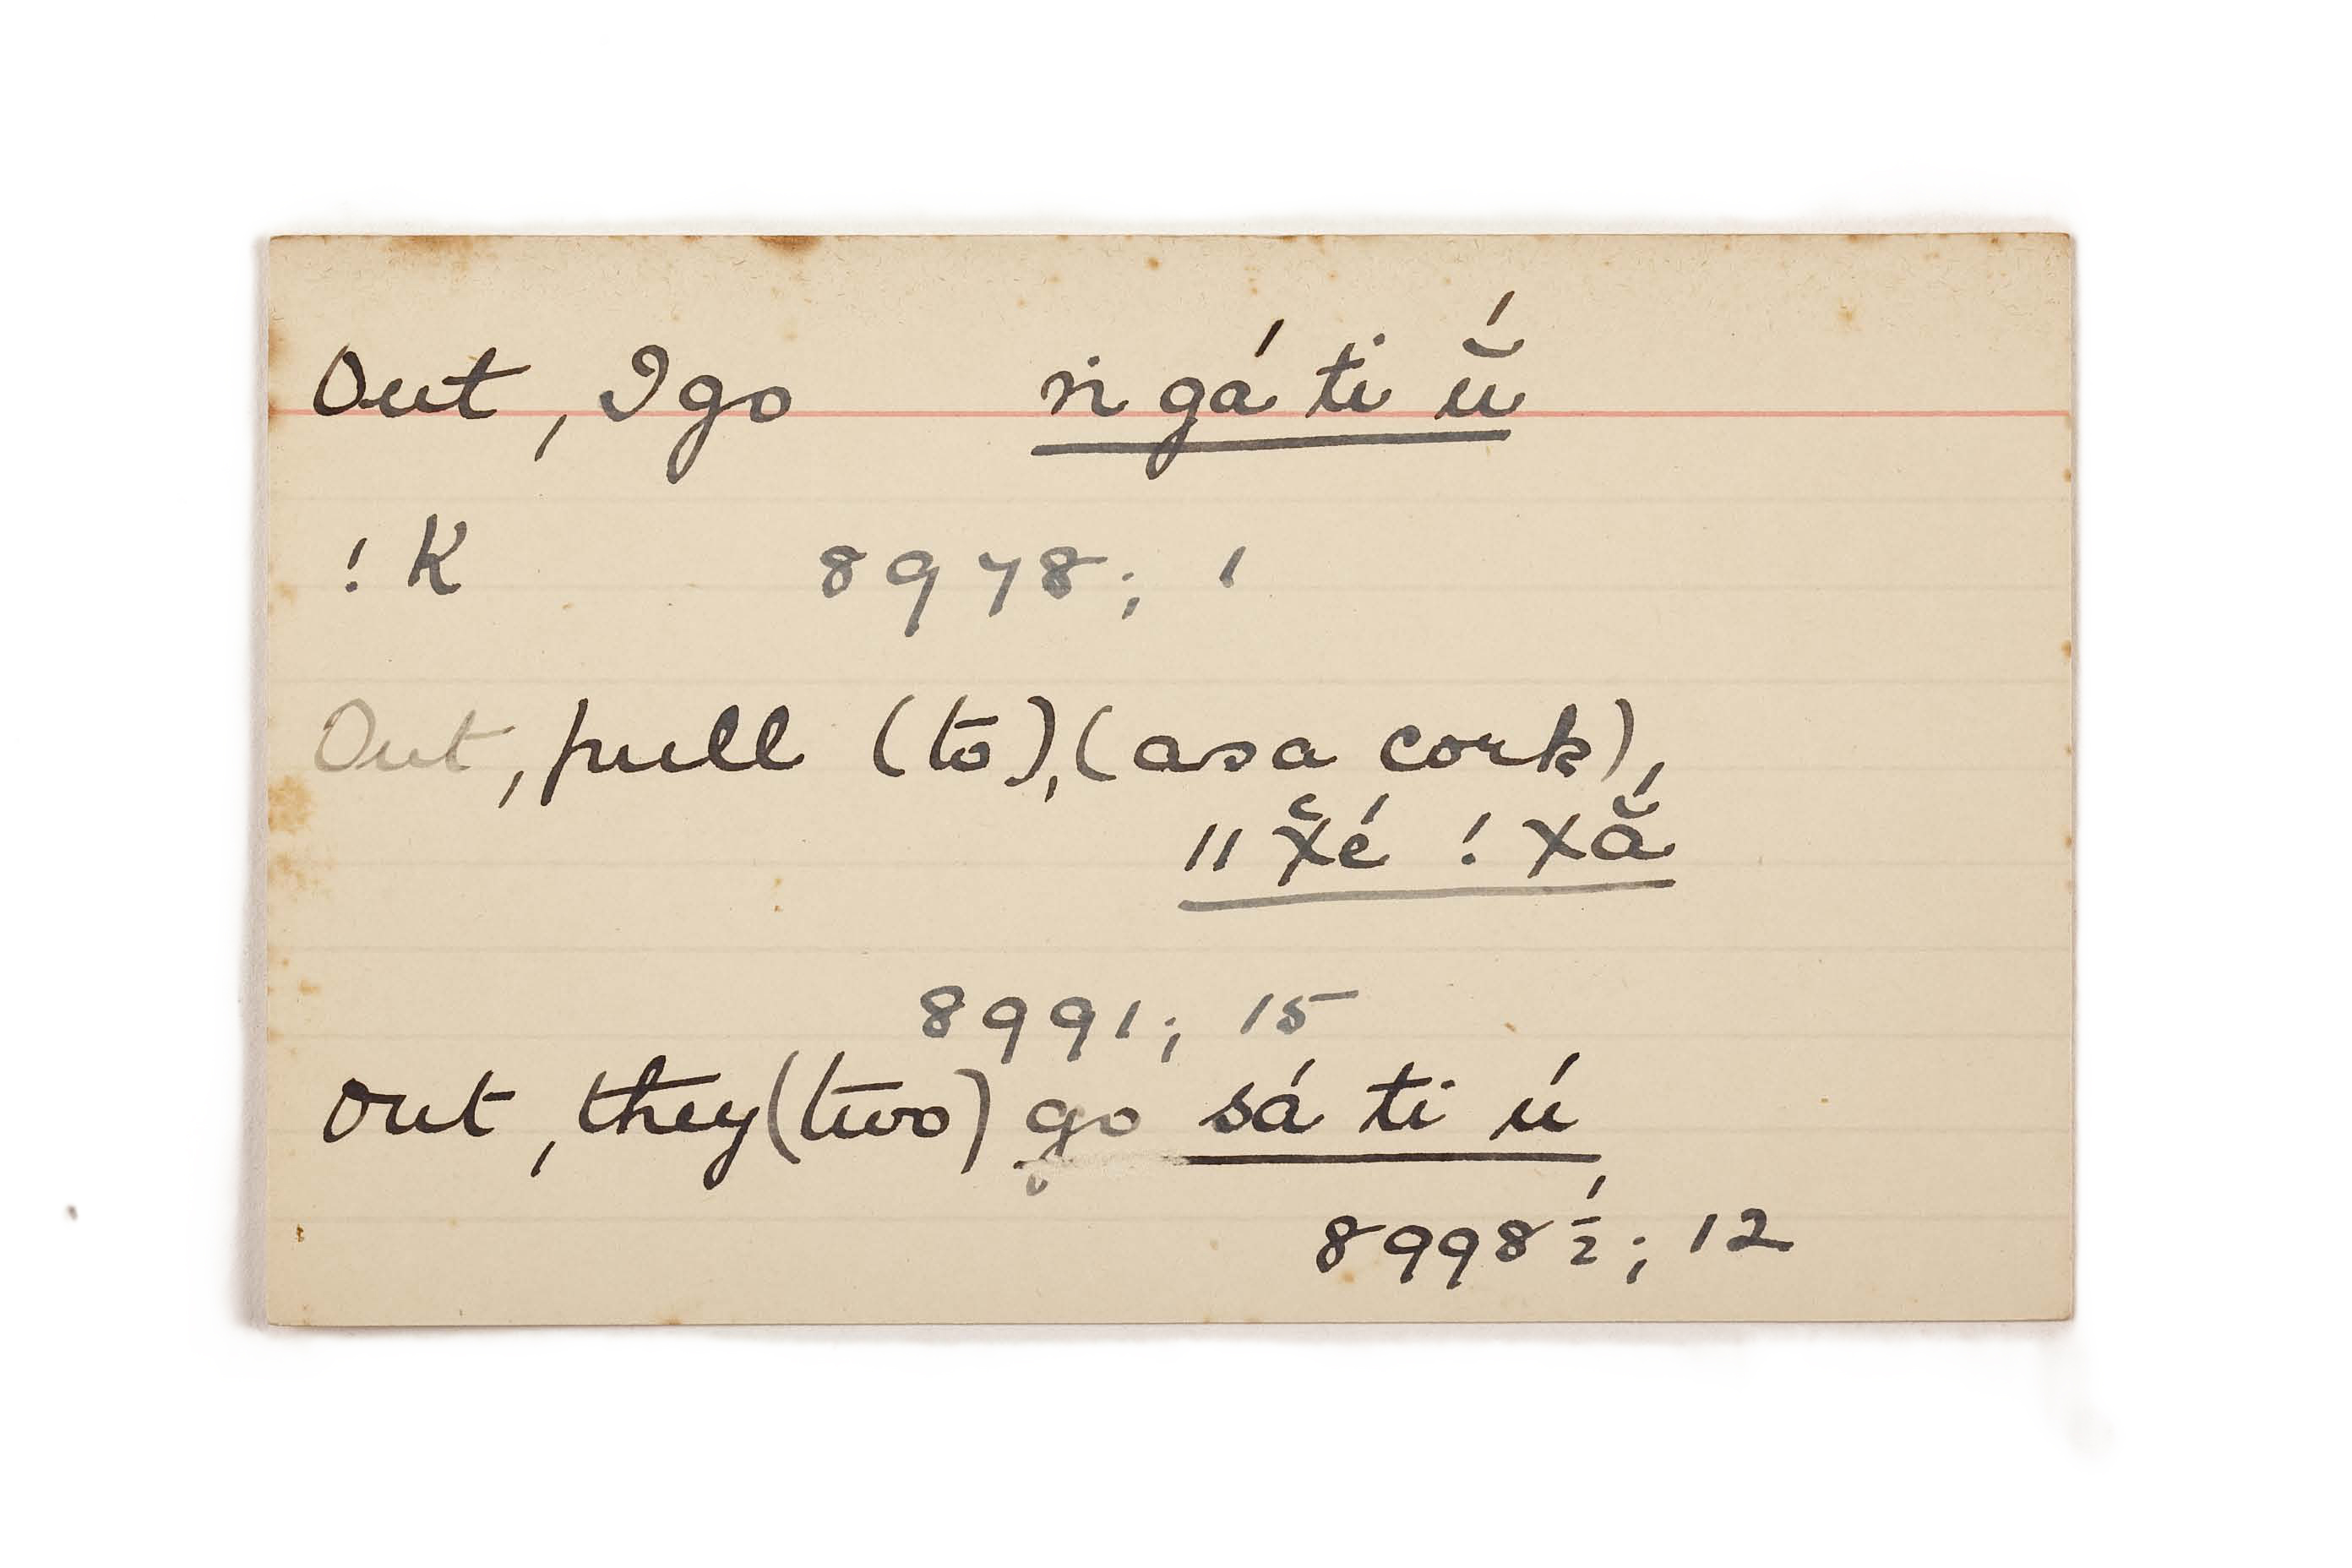 Out, I go ṅ gá ti ŭ́
! K 8978; 1
Out, pull (to), (as a cork),
ǁ χ̆é ! χắ
8991; 15
Out, they (two) go sá ti ú
8998½; 12